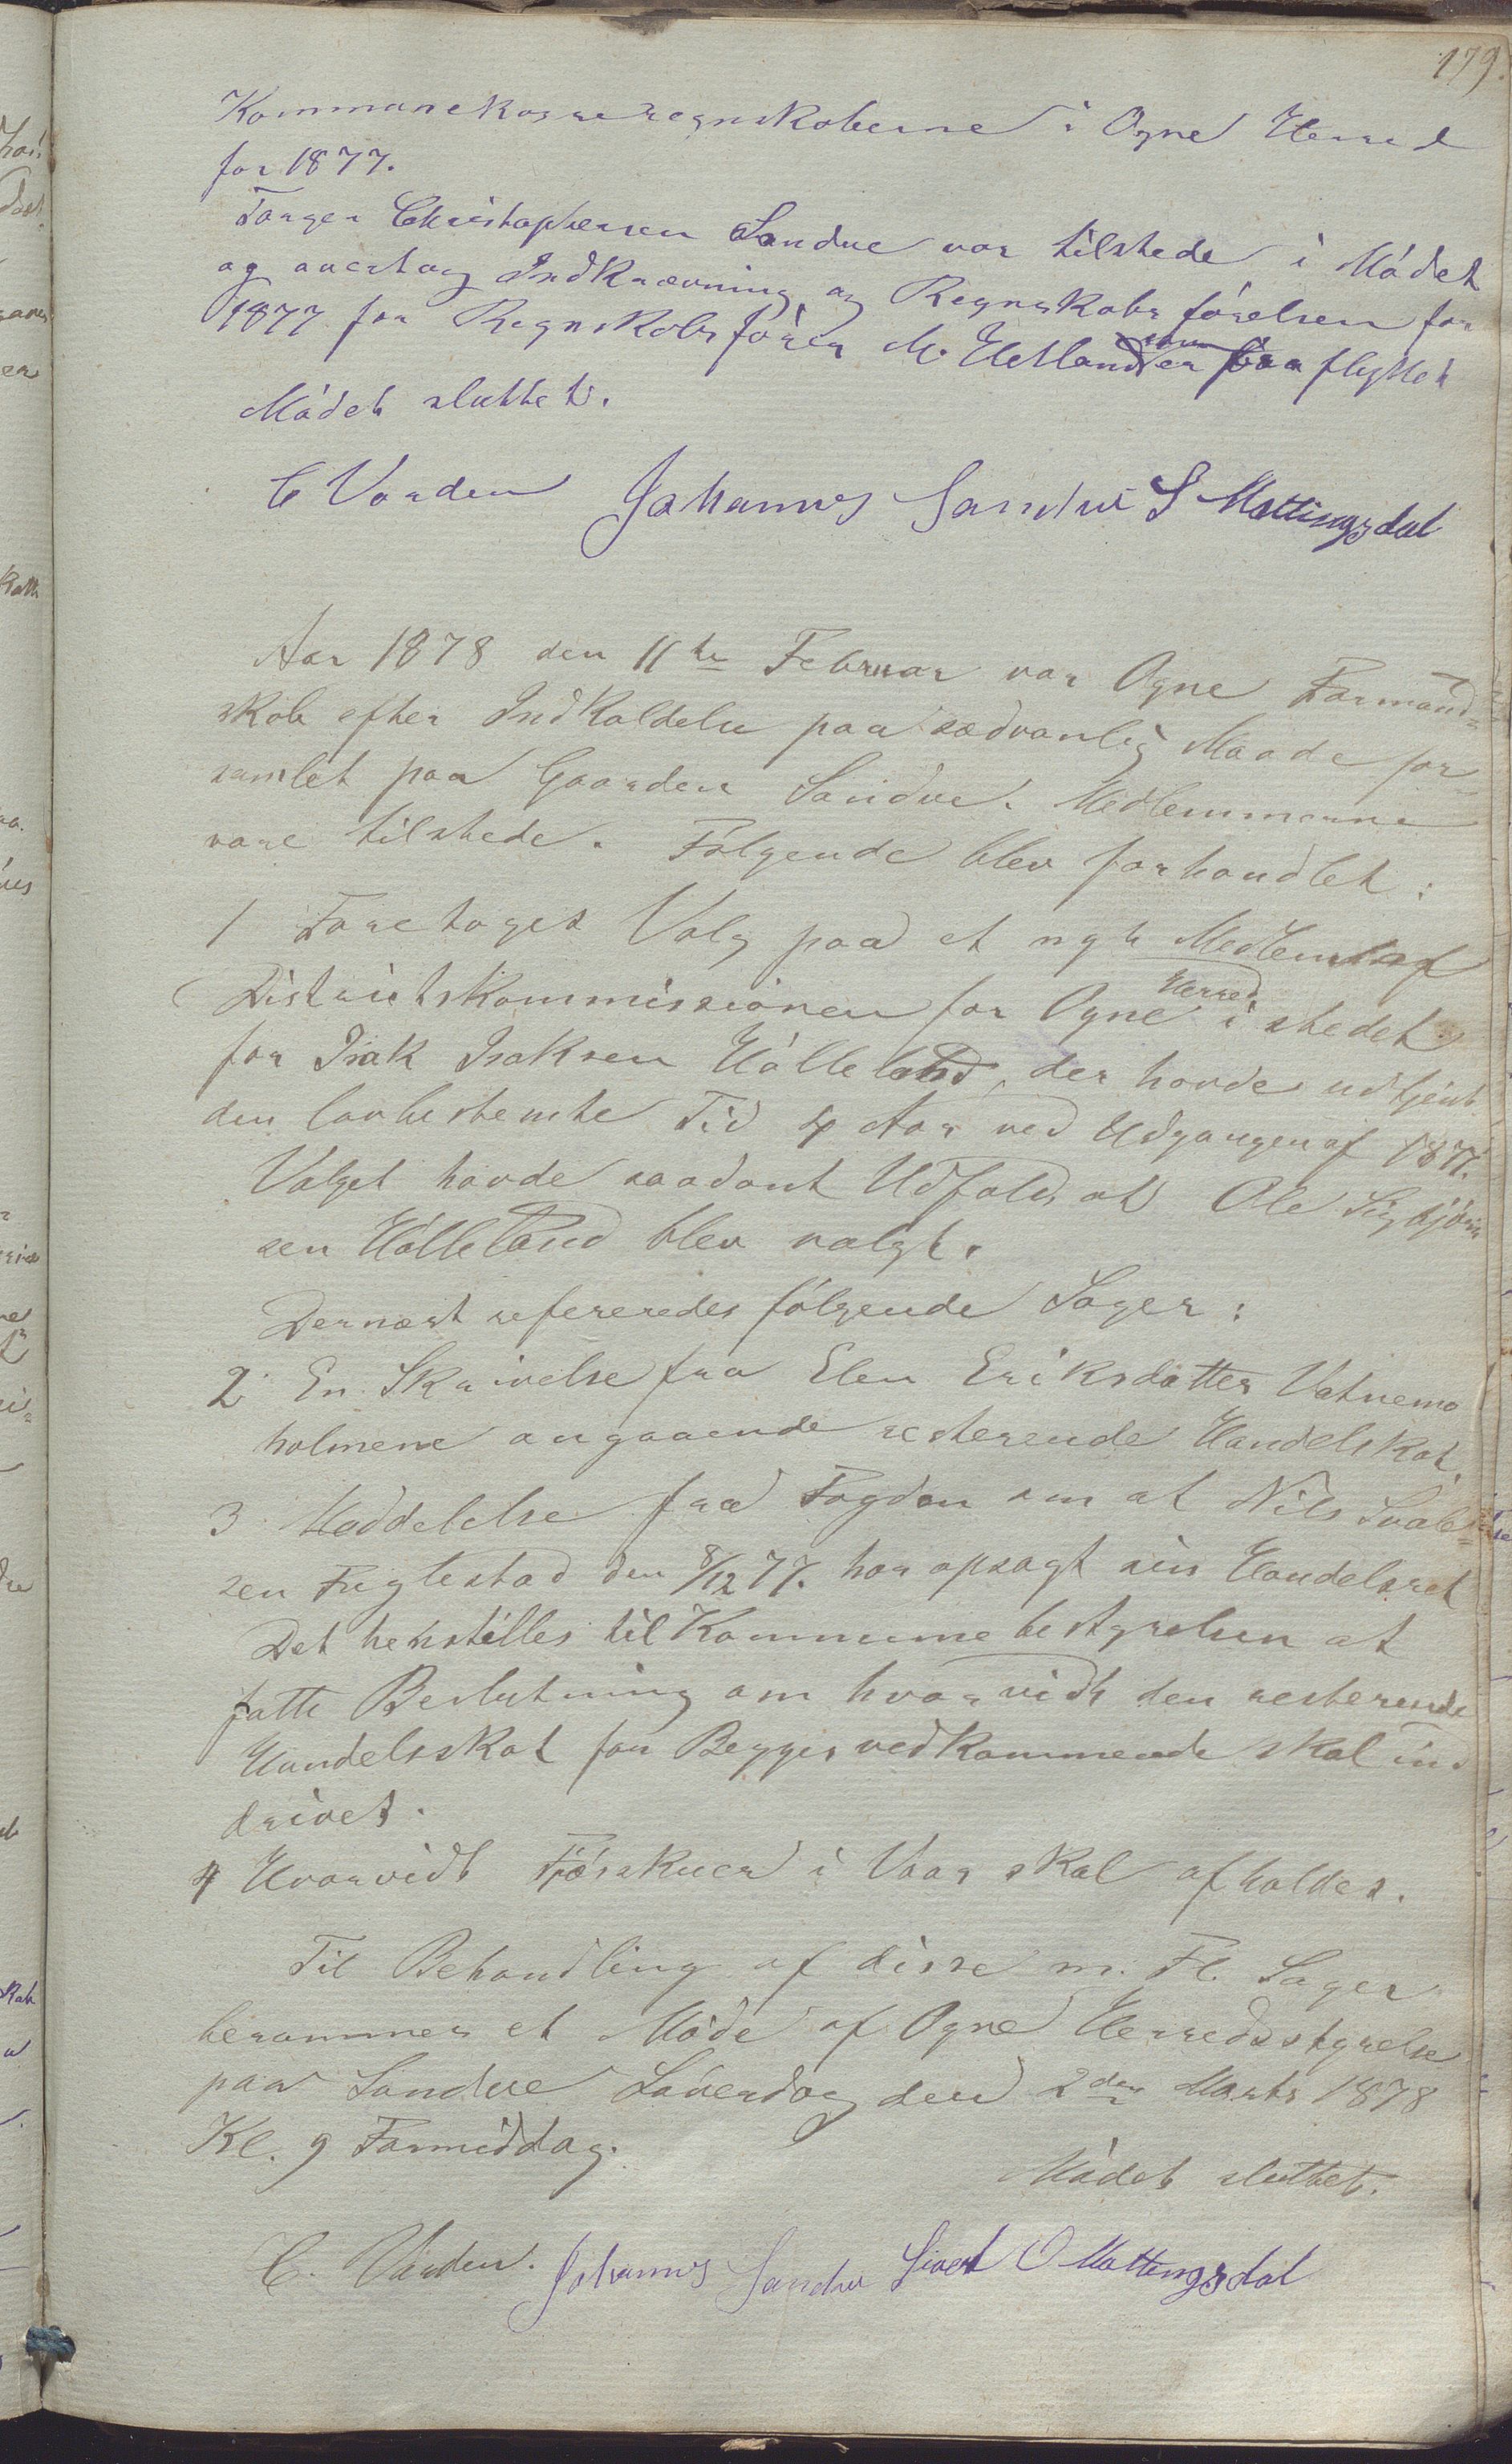 179.
Kommunekasseregnskaberne i Ogne Herred
for 1877.
Torger Christophersen Sandve var tilstede i Mødet
og overtog Indkrævning og Regnskabsførelsen for
1877 fra Regnskabsfører M. Hetland som er fraflyttet
Mødet sluttet.
C Varden Johannes Sandve S Mattingsdal
Aar 1878 den 11te Februar var Ogne Formand-
skab efter Indkaldelse paa sædvanlig Maade for-
samlet paa Gaarden Sandve. Medlemmerne
vare tilstede. Følgende blev forhandlet:
1 Foretoges Valg paa et nyt Medlem af
Districtskommissionen for Ogne Herred i stedet
for Isak Isaksen Hølleland, der havde udtjent
den lovbestemte Tid 4 Aar ved Udgangen af 1877.
Valget havde saadant Udfald at Ole Sigbjørn
sen Hølleland blev valgt.
Dernæst refereredes følgende Sager:
2 En Skrivelse fra Elen Eriksdatter Vatnemo
holmene angaaende resterende Handelskat.
3 Meddelelse fra Fogden om at Nils Svale-
sen Fuglestad den 8/12 77. har opsagt sin Handelsret
Det henstilles til Kommunebestyrelsen at
fatte Beslutning om hvorvidt den resterende
Handelsskat for Begges vedkommende skal ind
drives.
4 Hvorvidt Fjøsskuer i Vaar skal afholdes.
Til Behandling af disse m. Fl. Sager
berammes et Møde af Ogne Herredsstyrelse
paa Sandve Løverdag den 2den Marts 1878
Kl. 9 Formiddag.
Mødet sluttet.
C. Varden. Johannes Sandve Sivert O Mattingsdal